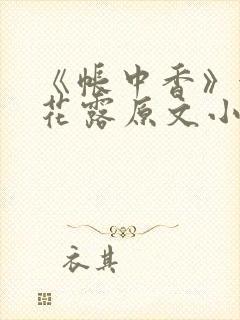 《帐中香》
花露原文小
衣其